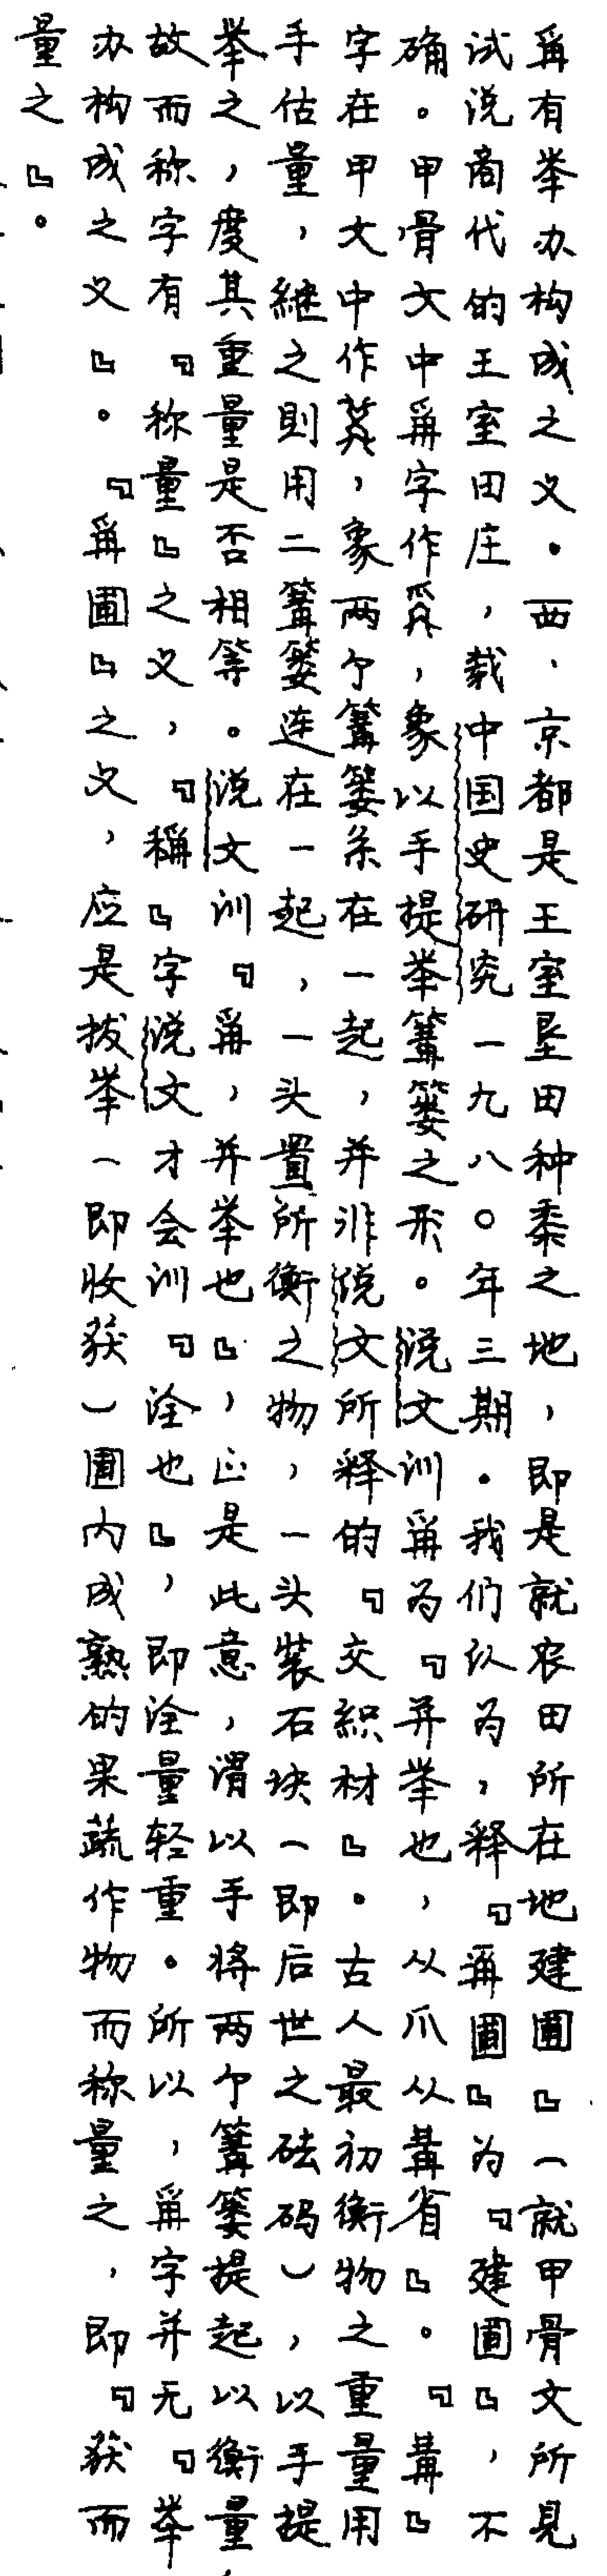 爯有举办构成之义。西、京都是王室垦田种黍之地，即是就农田所在地建圃』（就甲骨文所見
试说商代的王室田庄，载中国史研究一九八〇年三期。我们认为，释『爯圃』为『建圃』，不
确。甲骨文中爯字作，象以手提举篝篓之形。说文训爯为『并举也，从爪从冓省』。『冓』
字在甲文中作，象两个篝篓系在一起，并非说文所释的『交織材』。古人最初衡物之重量用
手估量，継之則用二篝篓连在一起，一头置所衡之物，一头裝石块（即后世之砝码），以手提
举之，度其重量是否相等。说文训『爯，并举也』，正是此意，谓以手将两个篝篓提起以衡量
故而称字有『称量』之义，『稱』字说文才会训『诠也』，即诠量轻重。所以，爯字并无『举
办构成之义』。『爯圃』之义，应是拔举（即收获）圃内成熟的果蔬作物而称量之，即『获而
量之』。